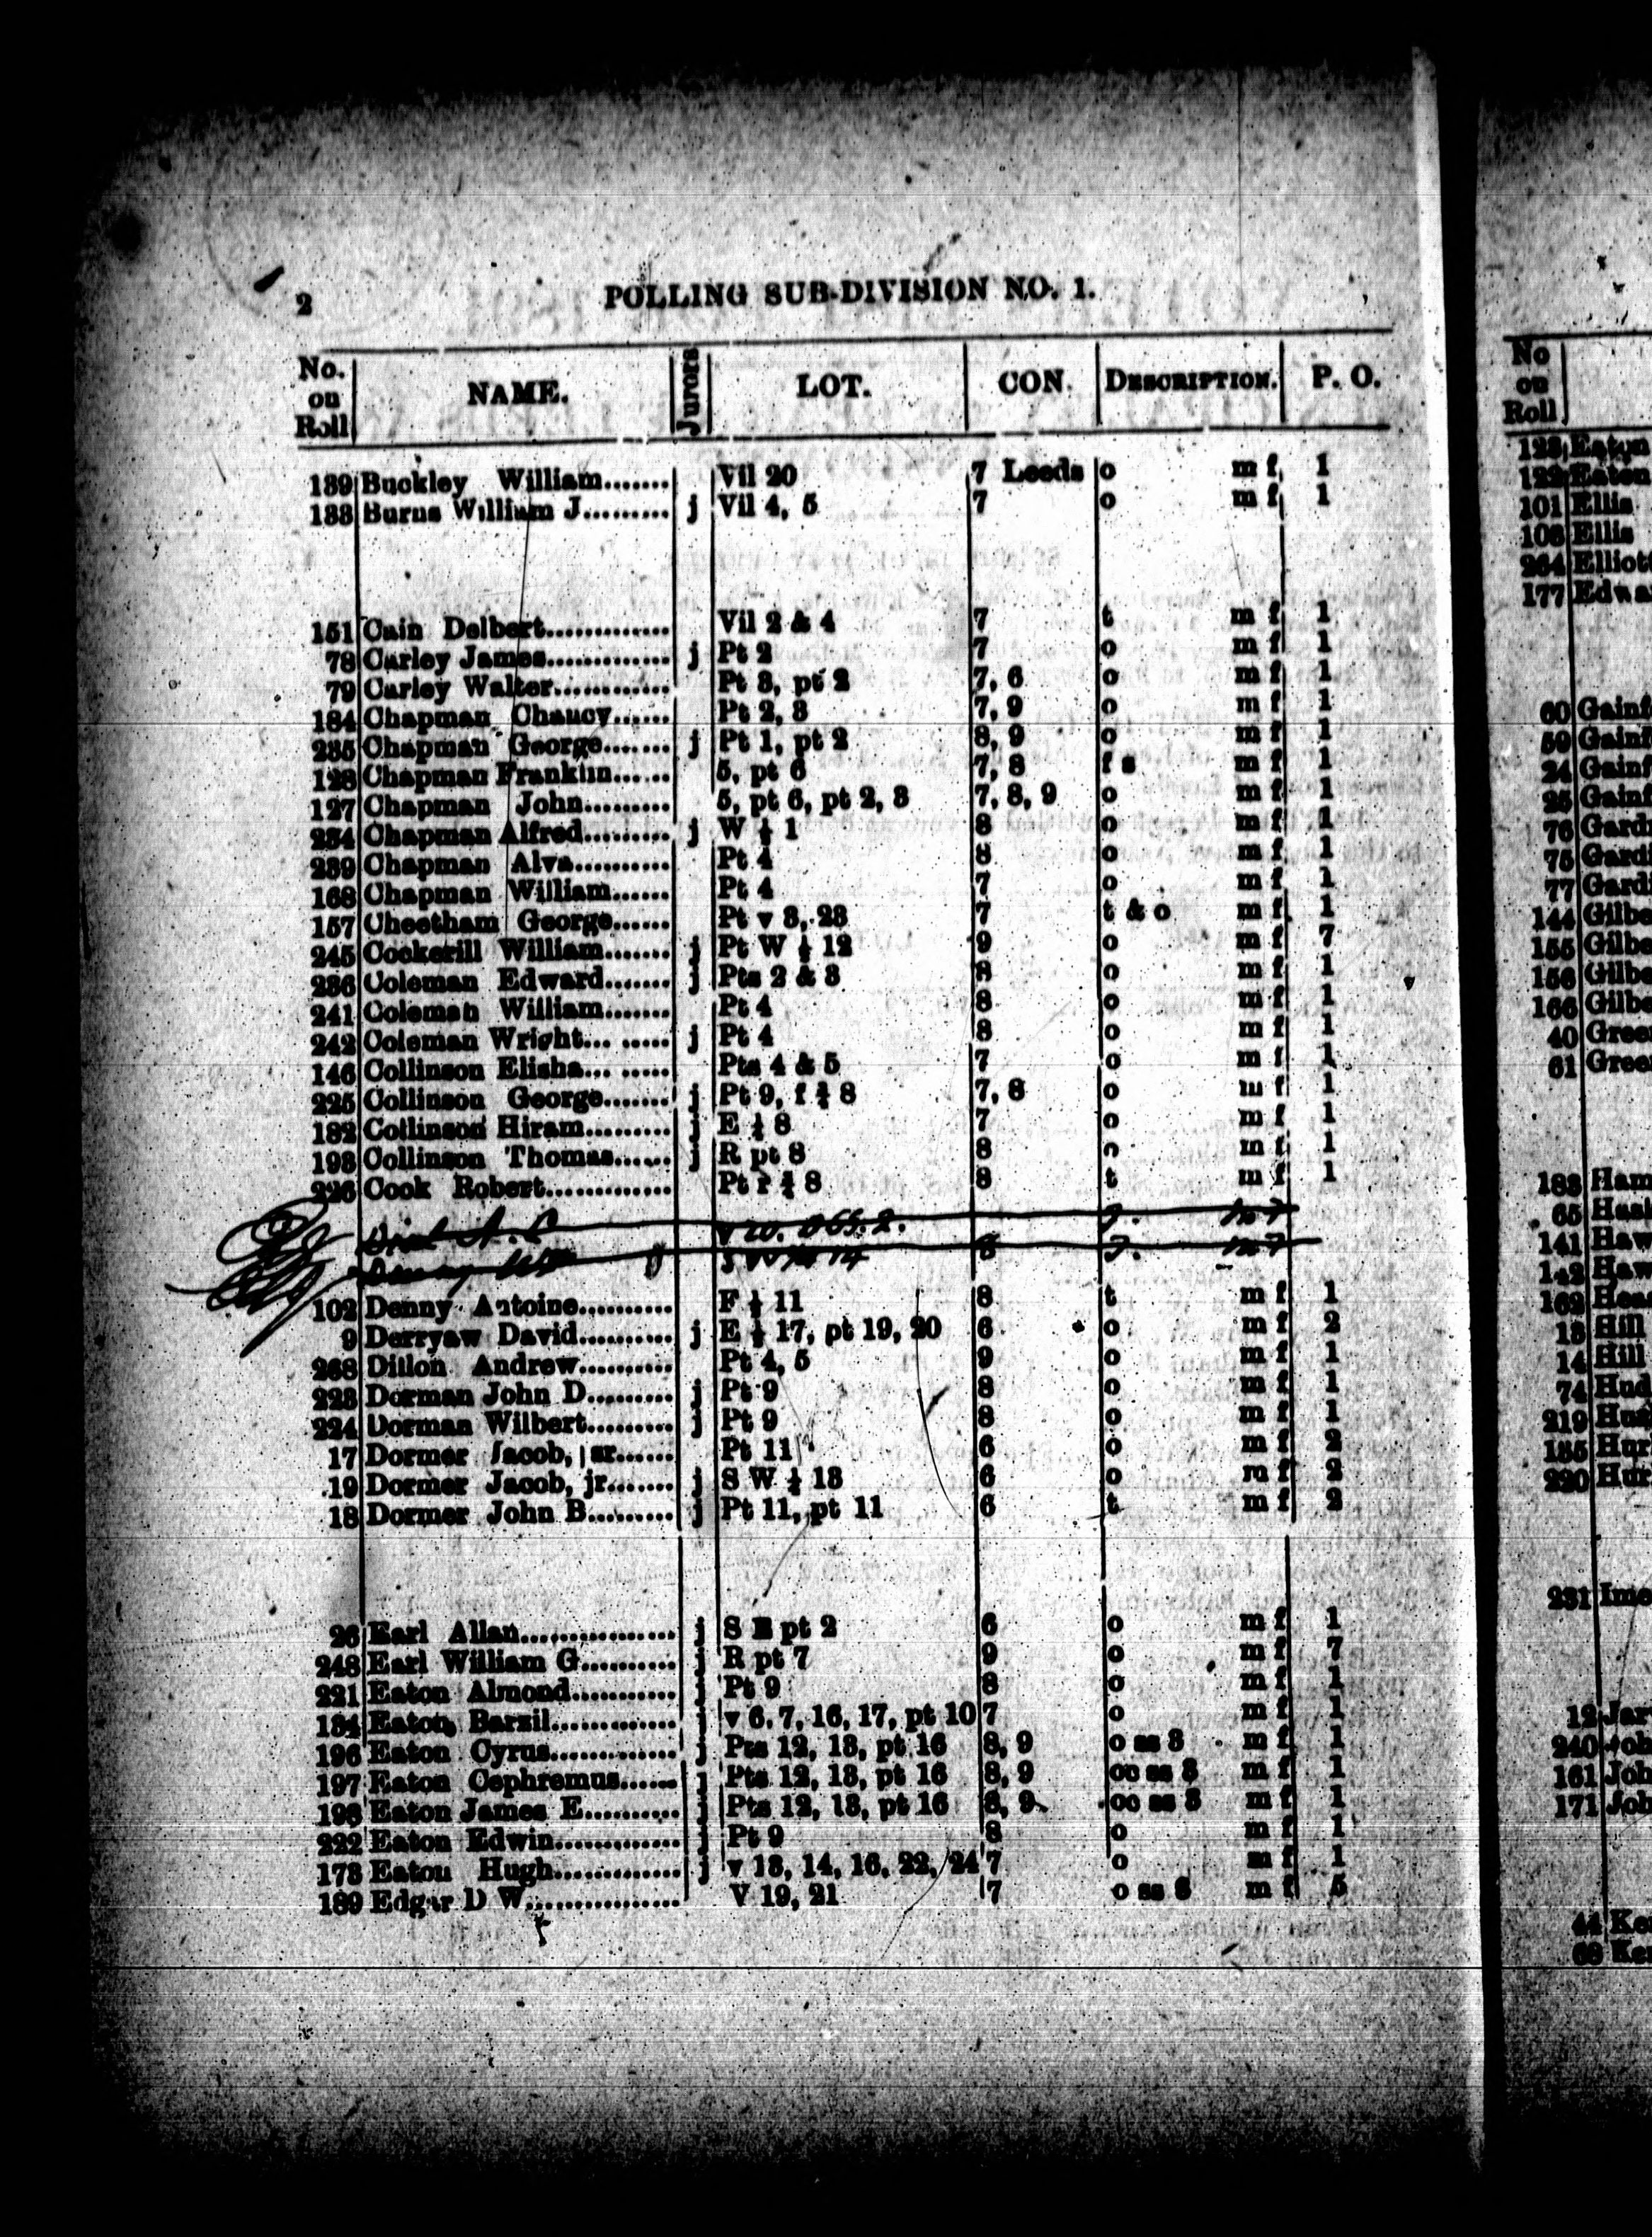 2 POLLING SUB-DIVISION NO. 1.
No. on Roll NAME. Jurors LOT. CON. DESCRIPTION. P. O.
139 Buckley William....... Vil 20 7 Leeds o m f 1
133 Burns William J......... j Vil 4, 5 7 o m f 1
151 Cain Delbert............. Vil 2 & 4 7 t m f 1
78 Carley James............. j Pt 2 7 o m f 1
79 Carley Walter............ Pt 3, pt 2 7, 6 o m f 1
184 Chapman Chaucy...... Pt 2, 3 7, 9 o m f 1
235 Chapman George....... j Pt 1, pt 2 8, 9 o m f 1
128 Chapman Franklin...... 5, pt 6 7, 8 f s m f 1
127 Chapman John......... 5, pt 6, pt 2, 3 7, 8, 9 o m f 1
234 Chapman Alfred......... j W ½ 1 8 o m f 1
239 Chapman Alva.......... Pt 4 8 o m f 1
168 Chapman William...... Pt 4 7 o m f 1
157 Cheetham George...... Pt v 3, 23 7 t & o m f 1
245 Cockerill William....... j Pt W ½ 12 9 o m f 7
236 Coleman Edward....... j Pts 2 & 3 8 o m f 1
241 Coleman William....... Pt 4 8 o m f 1
242 Coleman Wright... ..... j Pt 4 8 o m f 1
146 Collinson Elisha... ..... Pts 4 & 5 7 o m f 1
225 Collinson George....... j Pt 9, f 8 7, 8 o m f 1
182 Collinson Hiram......... j E ½ 8 7 o m f 1
193 Collinson Thomas...... j R pt 8 8 o m f 1
226 Cook Robert............. Pt r 8 8 t m f 1
102 Denny Antoine.......... F ½ 11 8 t m f 1
9 Derryaw David........... j E ½ 17, pt 19, 20 6 o m f 2
268 Dillon Andrew.......... Pt 4, 5 9 o m f 1
223 Dorman John D......... j Pt 9 8 o m f 1
224 Dorman Wilbert......... j Pt 9 8 o m f 1
17 Dormer Jacob, sr...... Pt 11 6 o m f 2
19 Dormer Jacob, jr....... j S W ½ 13 6 o m f 2
18 Dormer John B......... j Pt 11, pt 11 6 t m f 2
26 Earl Allan................. j S E pt 2 6 o m f 1
248 Earl William G.......... j R pt 7 9 o m f 7
221 Eaton Almond........... j Pt 9 8 o m f 1
134 Eaton Barzil............. j v 6, 7, 16, 17, pt 10 7 o m f 1
196 Eaton Cyrus............. j Pts 12, 13, pt 16 8, 9 o ss 3 m f 1
197 Eaton Cephremus...... j Pts 12, 13, pt 16 8, 9 oc ss 3 m f 1
198 Eaton James E.......... j Pts 12, 13, pt 16 8, 9 oc ss 3 m f 1
222 Eaton Edwin............. j Pt 9 8 o m f 1
173 Eaton Hugh............. j v 13, 14, 16, 22, 24 7 o m f 1
189 Edgar D W................ V 19, 21 7 o ss 3 m f 5
No on Roll
123 Eaton
122 Eaton
101 Ellis
103 Ellis
264 Elliott
177 Edwa
60 Gainf
59 Gainf
24 Gainf
25 Gainf
76 Gard
75 Gardi
77 Gardi
144 Gilbe
155 Gilbe
156 Gilbe
166 Gilbe
40 Gree
61 Gree
183 Ham
65 Hask
141 Haw
142 Haw
162
13 Hill
14 Hill
74 Hud
219
185 Hur
220
231 Ime
12 Jar
240 Joh
161 Joh
171 Joh
44 Ke
68 Ke